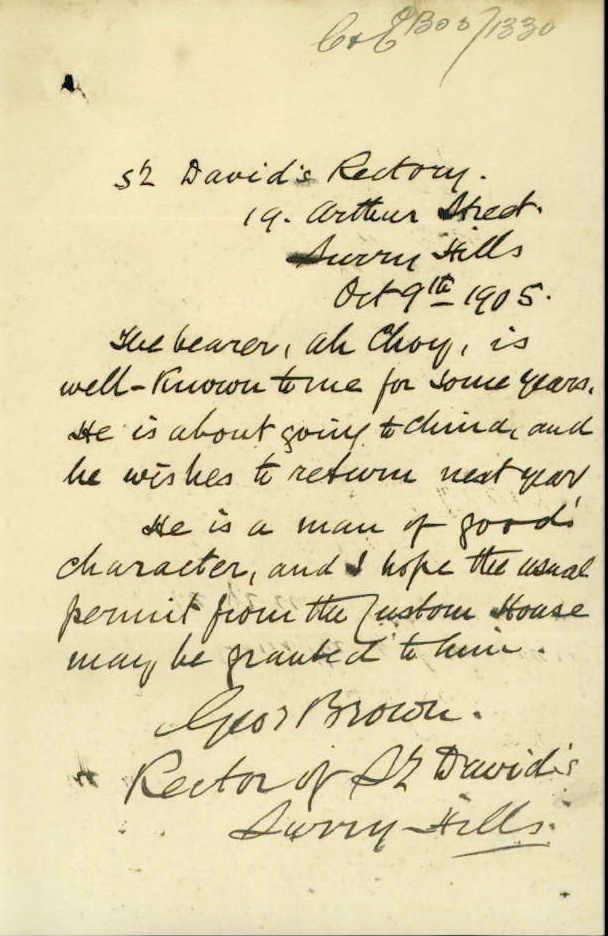 C & E B00/1330
St David's Rectory.
19. Arthur Street.
Surry Hills
Oct 9th 1905.
The bearer, Ah Choy, is
well-known to me for some years.
He is about going to China, and
he wishes to return next year
He is a man of good
character, and I hope the usual
permit from the Custom House
may be granted to him.
Brown.
Rector of St David's
Surry Hills.